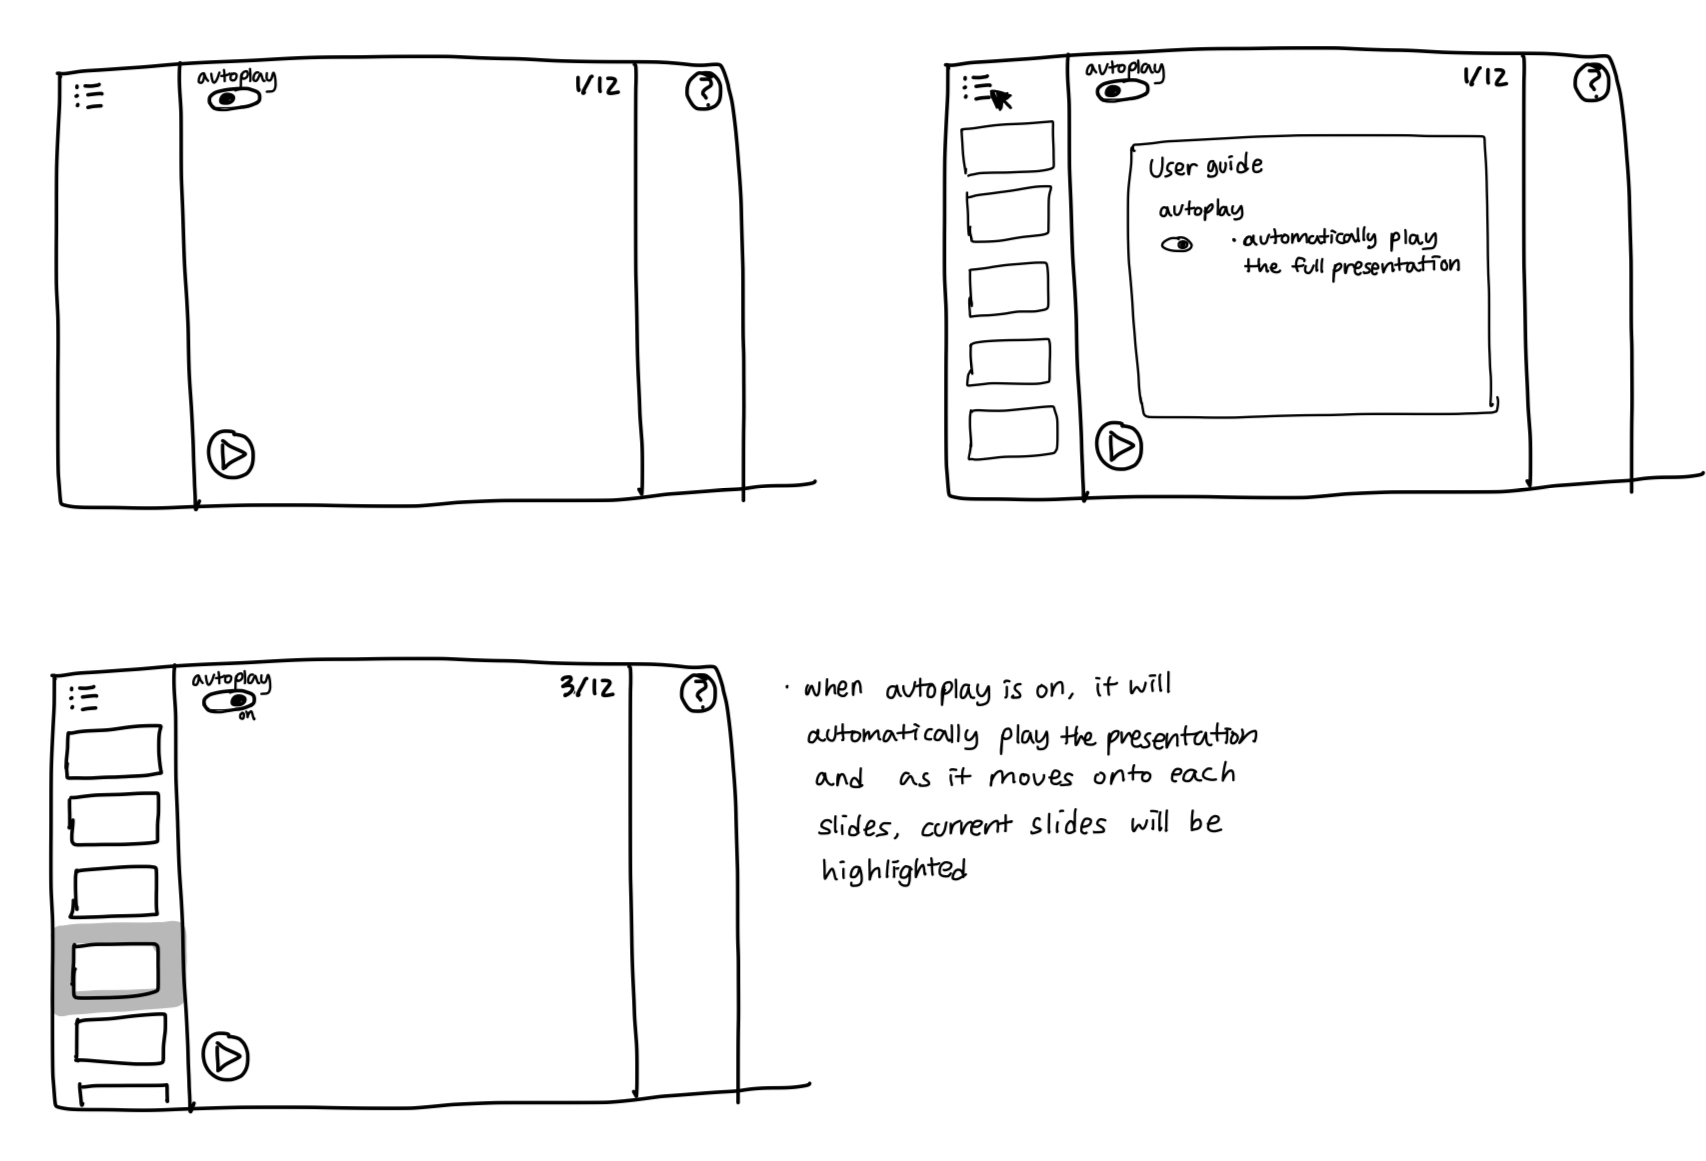 autoplay
1/12
?
autoplay
1/12
?
User guide
autoplay
· automatically play
the full presentation
autoplay
on
3/12
?
· when autoplay is on, it will
automatically play the presentation
and as it moves onto each
slides, current slides will be
highlighted